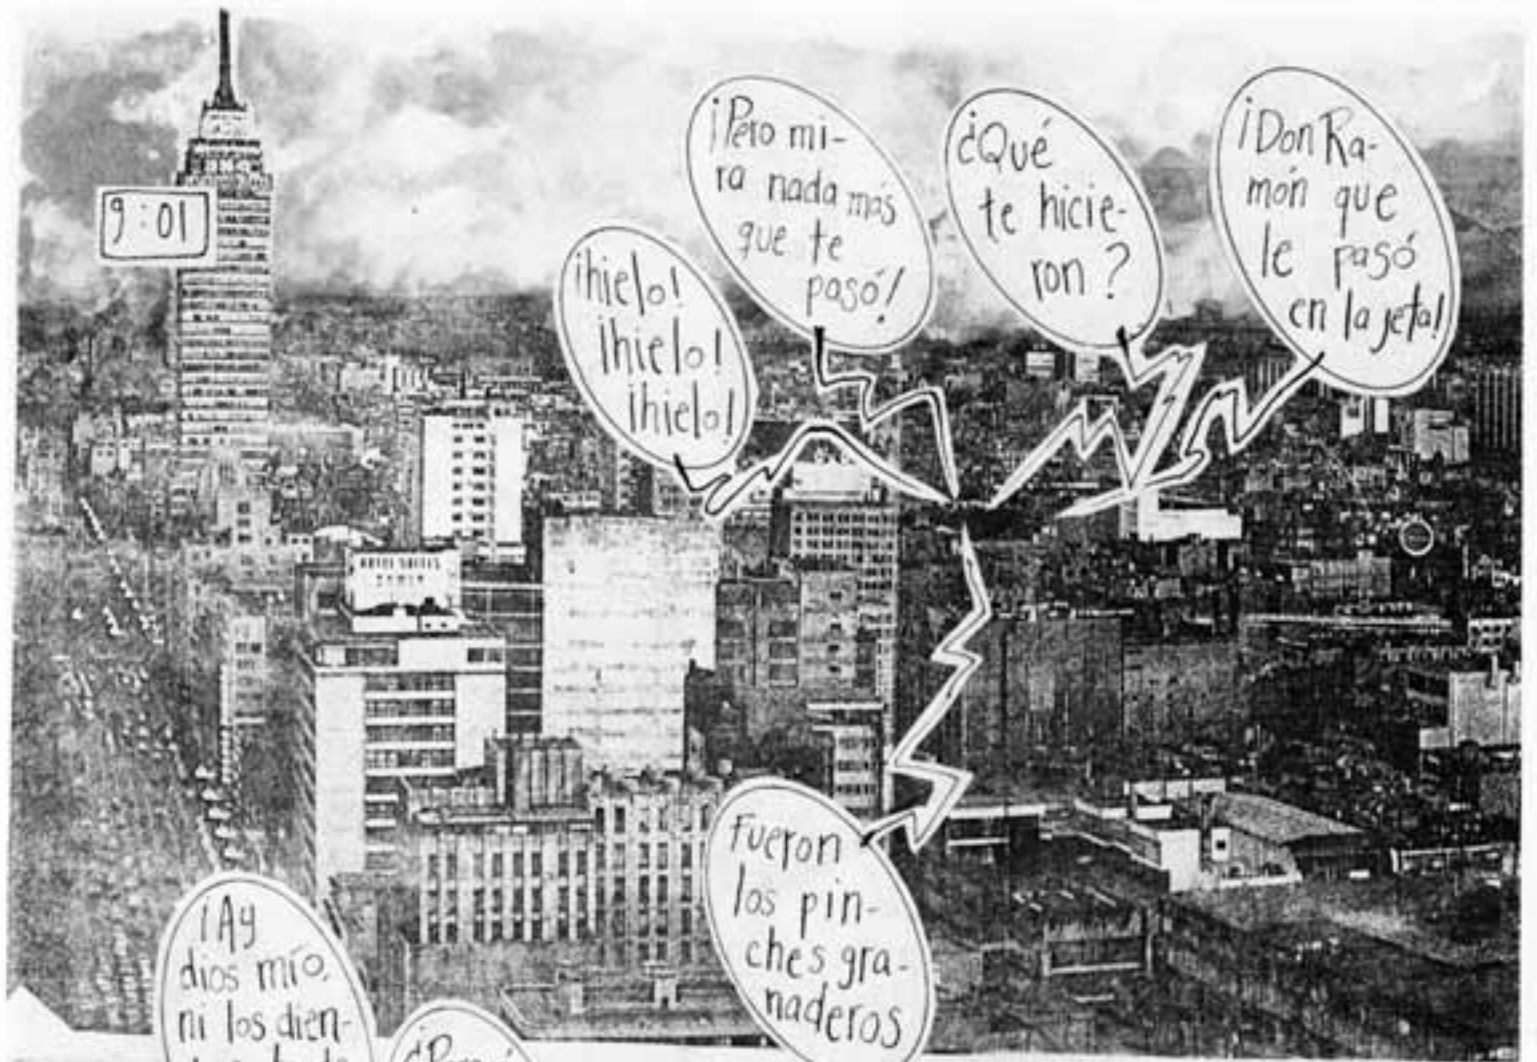 9:01
¡hielo!
¡hielo!
¡hielo!
¡Pero mi-
ra nada más
que te
pasó!
¿Qué
te hicie-
ron?
¡Don Ra-
món que
le pasó
en la jeta!
Fueron
los pin-
ches gra-
naderos
¡Ay
dios mío,
ni los dien-